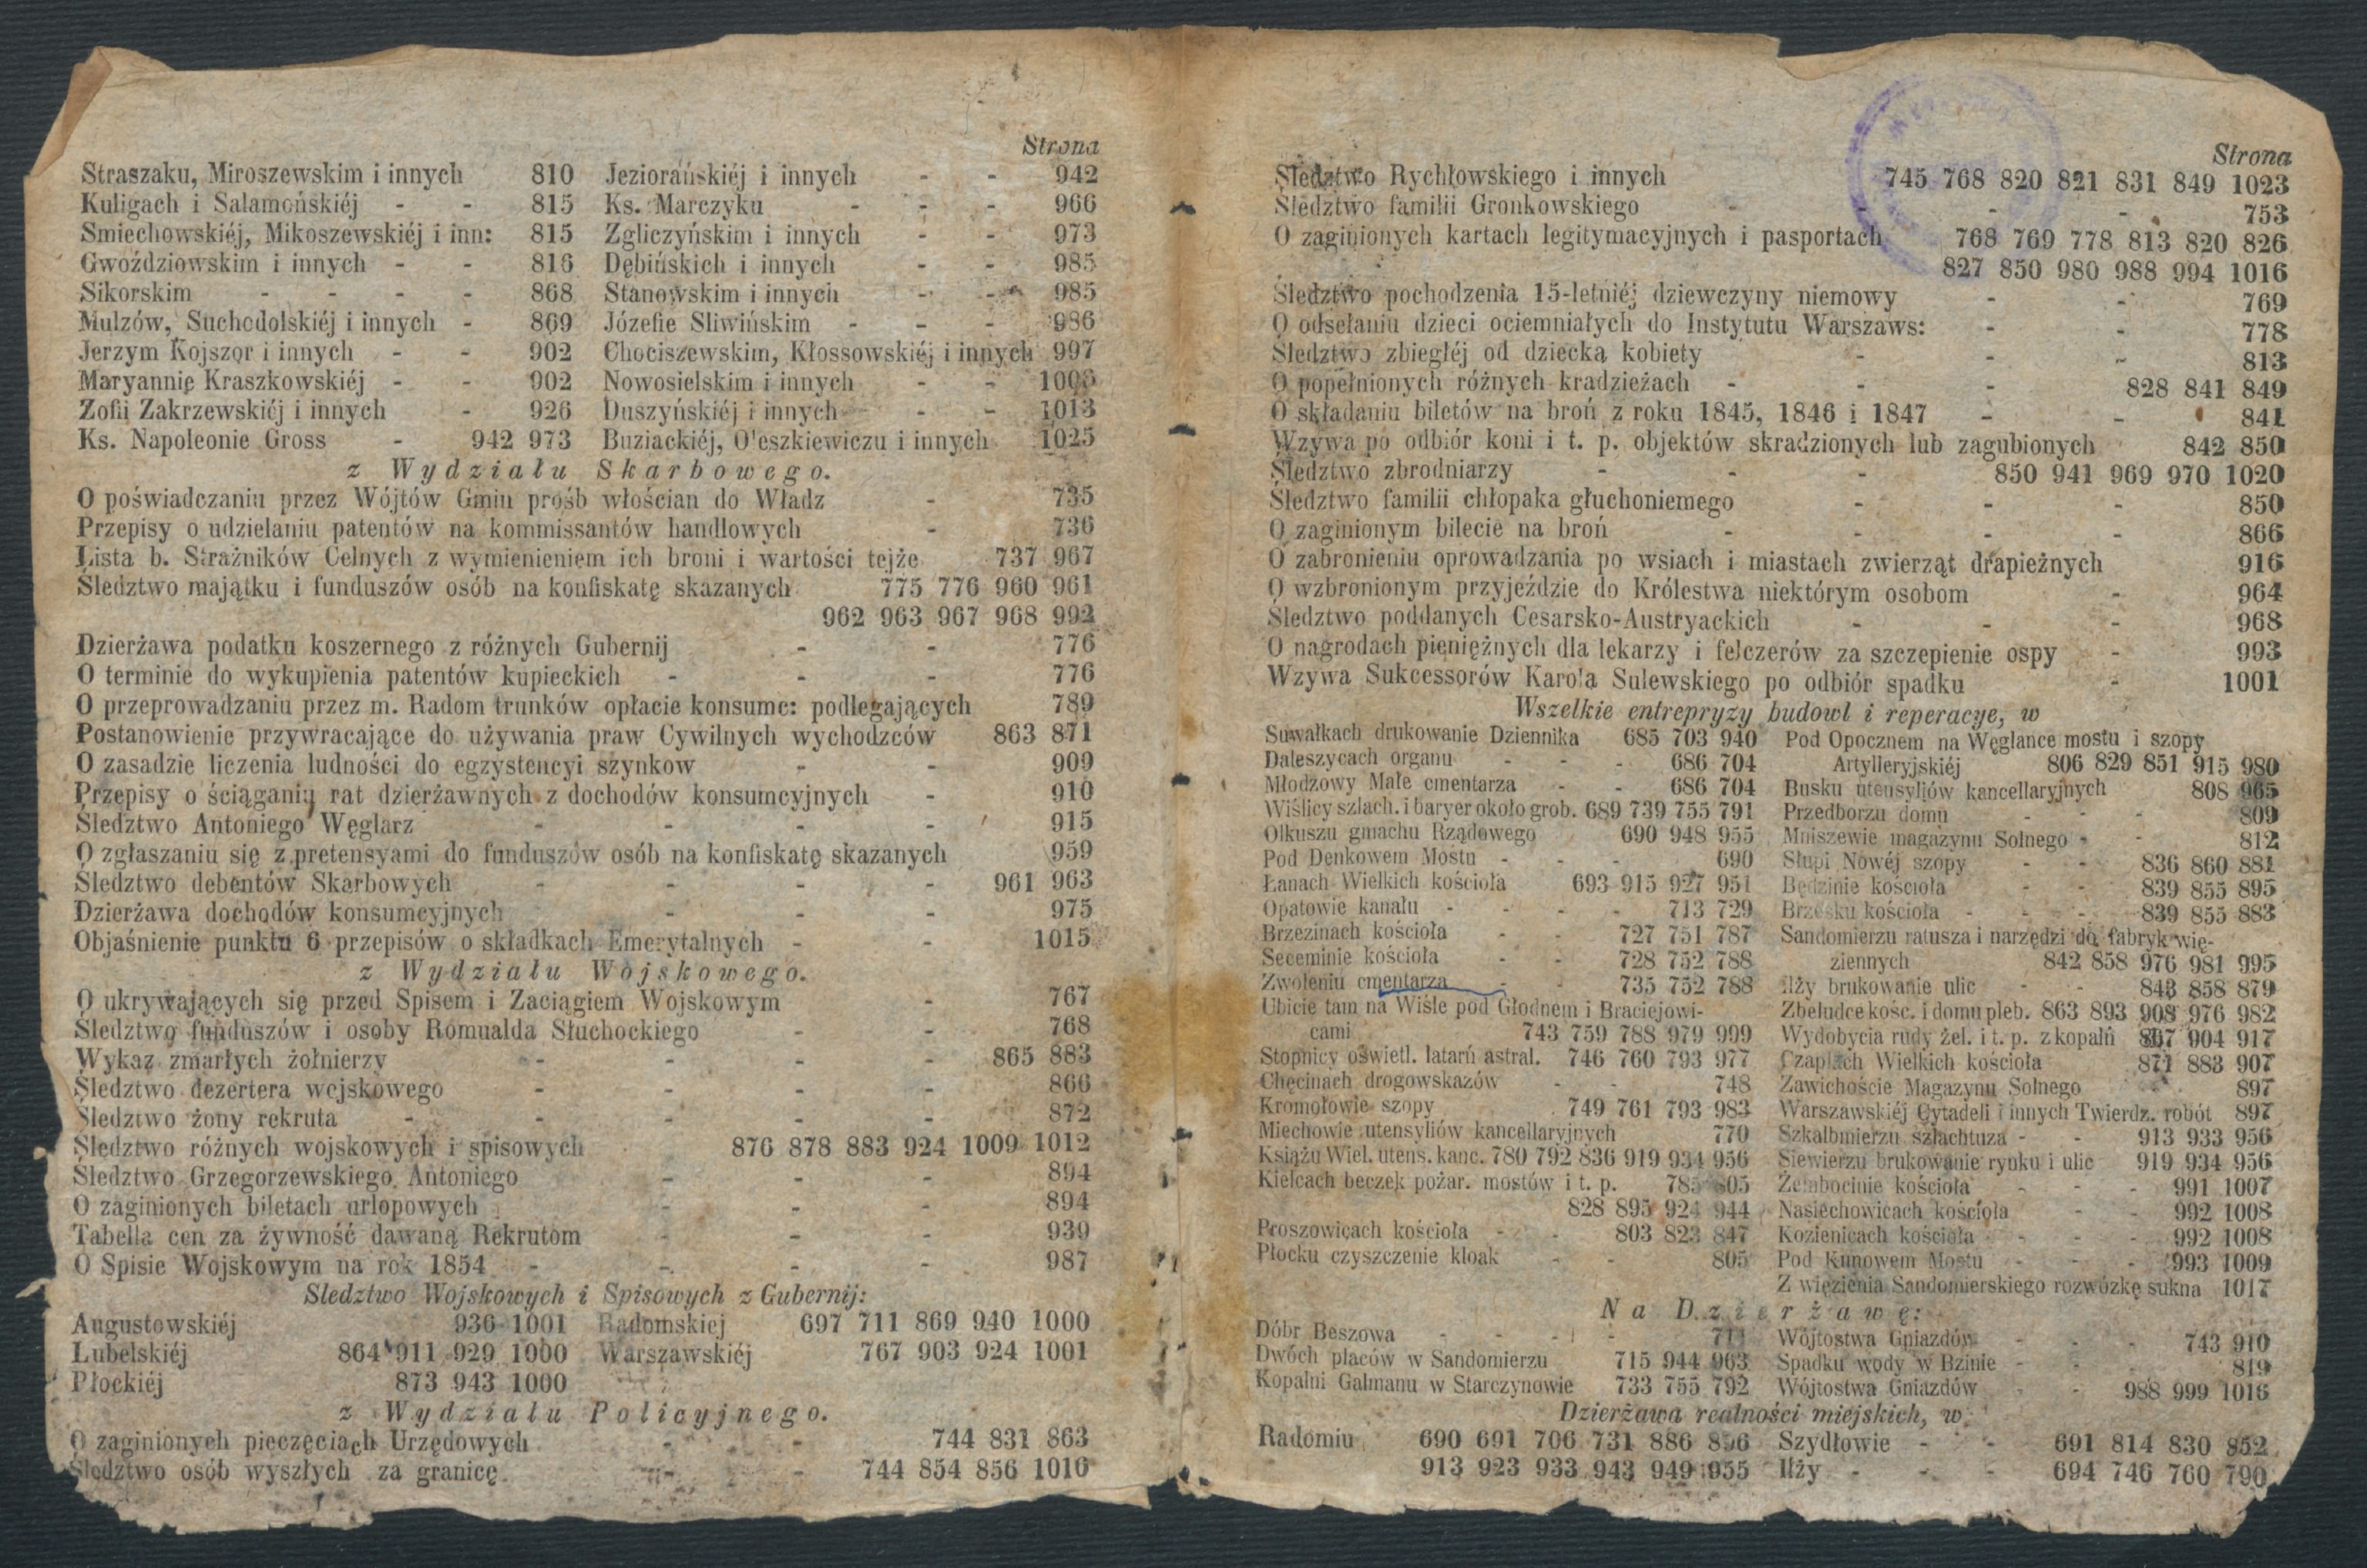 Strona
Straszaku, Miroszewskim i innych 810 Jeziorańskiéj i innych - - 942
Kuligach i Salamońskiéj - - 815 Ks. Marczyku - - - 966
Smiechowskiéj, Mikoszewskiéj i inn: 815 Zgliczyńskim i innych - - 973
Gwoździowskim i innych - - 816 Dębińskich i innych - - 985
Sikorskim - - - - 868 Stanowskim i innych - - 985
Mulzów, Suchodolskiéj i innych - 869 Józefie Sliwińskim - - - 986
Jerzym Kojszor i innych - - 902 Chociszewskim, Kłossowskiéj i innych 997
Maryannie Kraszkowskiéj - - 902 Nowosielskim i innych - - 1006
Zofii Zakrzewskiéj i innych - 926 Duszyńskiéj i innych - - 1013
Ks. Napoleonie Gross - 942 973 Buziackiéj, Oleszkiewiczu i innych 1025
z Wydziału Skarbowego.
O poświadczaniu przez Wójtów Gmin prośb włościan do Władz - 735
Przepisy o udzielaniu patentów na kommissantów handlowych - 736
Lista b. Strażników Celnych z wymienieniem ich broni i wartości tejże 737 967
Śledztwo majątku i funduszów osób na konfiskatę skazanych 775 776 960 961
962 963 967 968 992
Dzierżawa podatku koszernego z różnych Gubernij - - 776
O terminie do wykupienia patentów kupieckich - - - 776
O przeprowadzaniu przez m. Radom trunków opłacie konsumc: podlegających 789
Postanowienie przywracające do używania praw Cywilnych wychodzców 863 871
O zasadzie liczenia ludności do egzystencyi szynkow - - 909
Przepisy o ściąganiu rat dzierżawnych z dochodów konsumcyjnych - 910
Śledztwo Antoniego Węglarz - - - - 915
O zgłaszaniu się z pretensyami do funduszów osób na konfiskatę skazanych 959
Śledztwo debentów Skarbowych - - - - 961 963
Dzierżawa dochodów konsumcyjnych - - - 975
Objaśnienie punktu 6 przepisów o składkach Emerytalnych - - 1015
z Wydziału Wojskowego.
O ukrywających się przed Spisem i Zaciągiem Wojskowym - 767
Śledztwo funduszów i osoby Romualda Słuchockiego - - 768
Wykaz zmarłych żołnierzy - - - - 865 883
Śledztwo dezertera wojskowego - - - - 866
Śledztwo żony rekruta - - - - - 872
Śledztwo różnych wojskowych i spisowych 876 878 883 924 1009 1012
Śledztwo Grzegorzewskiego Antoniego - - - 894
O zaginionych biletach urlopowych - - - 894
Tabella cen za żywność dawaną Rekrutom - - - 939
O Spisie Wojskowym na rok 1854 - - - - 987
Sledztwo Wojskowych i Spisowych z Gubernij:
Augustowskiéj 936 1001 Radomskiej 697 711 869 940 1000
Lubelskiéj 864 911 929 1000 Warszawskiéj 767 903 924 1001
Płockiéj 873 943 1000
z Wydziału Policyjnego.
O zaginionych pieczęciach Urzędowych - - 744 831 863
Śledztwo osób wyszłych za granicę - - 744 854 856 1016
Strona
Śledztwo Rychłowskiego i innych 745 768 820 821 831 849 1023
Śledztwo familii Gronkowskiego - - - 753
O zaginionych kartach legitymacyjnych i pasportach 768 769 778 813 820 826
827 850 980 988 994 1016
Śledztwo pochodzenia 15-letniéj dziewczyny niemowy - - 769
O odsełaniu dzieci ociemniałych do Instytutu Warszaws: - - 778
Śledztwo zbiegłéj od dziecka kobiety - - - 813
O popełnionych różnych kradzieżach - - - 828 841 849
O składaniu biletów na broń z roku 1845, 1846 i 1847 - - 841
Wzywa po odbiór koni i t. p. objektów skradzionych lub zagubionych 842 850
Śledztwo zbrodniarzy - - - 850 941 969 970 1020
Śledztwo familii chłopaka głuchoniemego - - - 850
O zaginionym bilecie na broń - - - - 866
O zabronieniu oprowadzania po wsiach i miastach zwierząt drapieżnych 916
O wzbronionym przyjeździe do Królestwa niektórym osobom - 964
Śledztwo poddanych Cesarsko-Austryackich - - - 968
O nagrodach pieniężnych dla lekarzy i felczerów za szczepienie ospy - 993
Wzywa Sukcessorów Karola Sulewskiego po odbiór spadku - 1001
Wszelkie entrepryzy budowl i reperacye, w
Suwałkach drukowanie Dziennika 685 703 940
Daleszycach organu - - - 686 704
Młodzowy Małe cmentarza - - 686 704
Wiślicy szlach. i baryer około grob. 689 739 755 791
Olkuszu gmachu Rządowego 690 948 955
Pod Denkowem Mostu - - - 690
Łanach Wielkich kościoła 693 915 927 951
Opatowie kanału - - - - 713 729
Brzezinach kościoła - - 727 751 787
Seceminie kościoła - - 728 752 788
Zwoleniu cmentarza - - 735 752 788
Ubicie tam na Wiśle pod Głodnem i Braciejowi-
cami 743 759 788 979 999
Stopnicy oświetl. latarń astral. 746 760 793 977
Chęcinach drogowskazów - - 748
Kromołowie szopy 749 761 793 983
Miechowie utensyliów kancellaryjnych 770
Książu Wiel. utens. kanc. 780 792 836 919 934 956
Kielcach beczek pożar. mostów i t. p. 785 805
828 895 924 944
Proszowicach kościoła - - 803 823 847
Płocku czyszczenie kloak - - 805
Pod Opocznem na Węglance mostu i szopy
Artylleryjskiéj 806 829 851 915 980
Busku utensyliów kancellaryjnych 808 965
Przedborzu domu - - - 809
Mniszewie magazynu Solnego - - 812
Słupi Nowéj szopy - - 836 860 881
Będzinie kościoła - - 839 855 895
Brzesku kościoła - - - 839 855 883
Sandomierzu ratusza i narzędzi do fabryk wię-
ziennych 842 858 976 981 995
Iłży brukowanie ulic - - 843 858 879
Zbeludce kośc. i domu pleb. 863 893 908 976 982
Wydobycia rudy żel. i t. p. z kopalń 867 904 917
Czaplach Wielkich kościoła 871 883 907
Zawichoście Magazynu Solnego - 897
Warszawskiéj Cytadeli i innych Twierdz. robót 897
Szkalbmierzu szlachtuza - - 913 933 956
Siewierzu brukowanie rynku i ulic 919 934 956
Żelabocinie kościoła - - - 991 1007
Nasiechowicach kościoła - - 992 1008
Kozienicach kościoła - - - 992 1008
Pod Kunowem Mostu - - - 993 1009
Z więzienia Sandomierskiego rozwózkę sukna 1017
Na Dzierżawę:
Dóbr Beszowa - - - - 711 Wójtostwa Gniazdów - - - 743 910
Dwóch placów w Sandomierzu 715 944 963 Spadku wody w Bzinie - - - 819
Kopalni Galmanu w Starczynowie 733 755 792 Wójtostwa Gniazdów - - 988 999 1016
Dzierżawa realności miejskich, w
Radomiu 690 691 706 731 886 896 Szydłowie - - 691 814 830 852
913 923 933 943 949 955 Iłży - - - 694 746 760 790